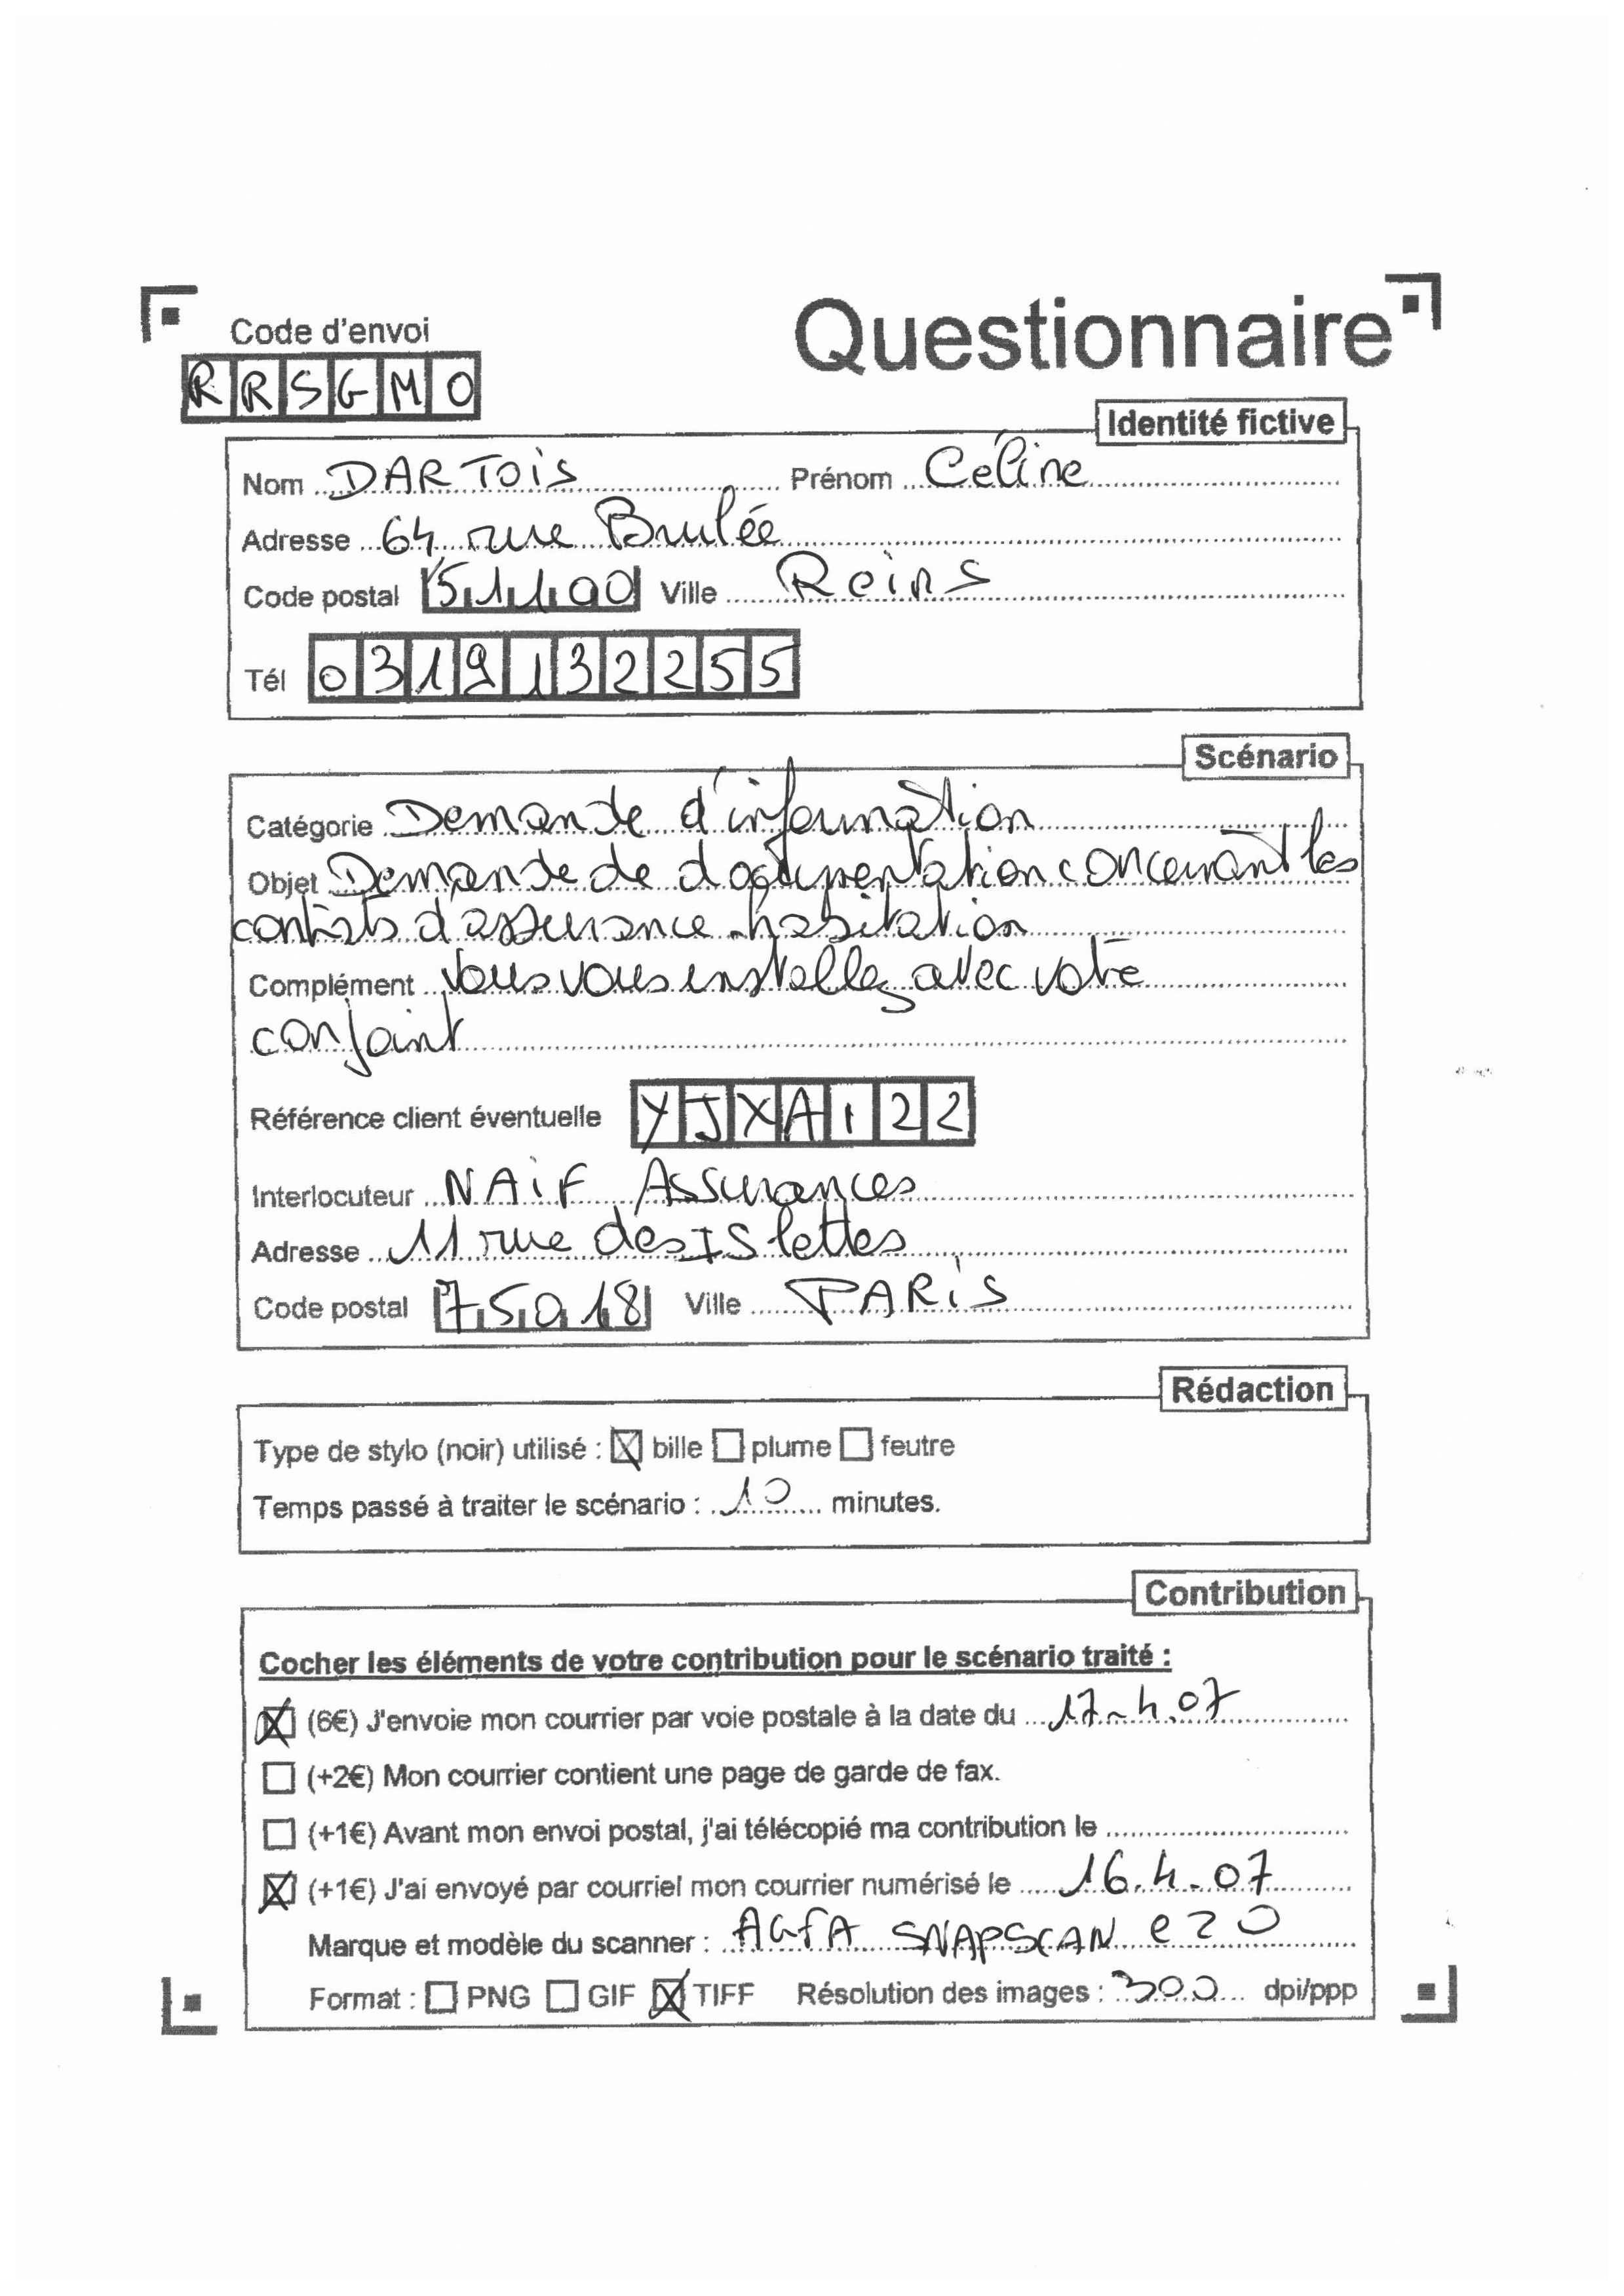 Questionnaire
Code d'envoi
RRSGMO
Identité fictive
Nom DARTOIS Prénom Celine
Adresse 64 rue Brulée
Code postal 51100 Ville Reims
Tél 0319132255
Scénario
Catégorie Demande d'information
Objet Demande de documentation concernant les
contrats d'assurance habitation
Complément Vous vous installez avec votre
conjoint
Référence client éventuelle YJXA122
Interlocuteur NAiF Assurances
Adresse 11 rue des ISlettes
Code postal 75018 Ville PARiS
Rédaction
Type de stylo (noir) utilisé : ☒ bille ☐ plume ☐ feutre
Temps passé à traiter le scénario : 10 minutes.
Contribution
Cocher les éléments de votre contribution pour le scénario traité :
☒ (6€) J'envoie mon courrier par voie postale à la date du 17-4.07
☐ (+2€) Mon courrier contient une page de garde de fax.
☐ (+1€) Avant mon envoi postal, j'ai télécopié ma contribution le
☒ (+1€) J'ai envoyé par courriel mon courrier numérisé le 16.4.07
Marque et modèle du scanner : AGfA SNAPSCAN e20
Format : ☐ PNG ☐ GIF ☒ TIFF Résolution des images : 300 dpi/ppp